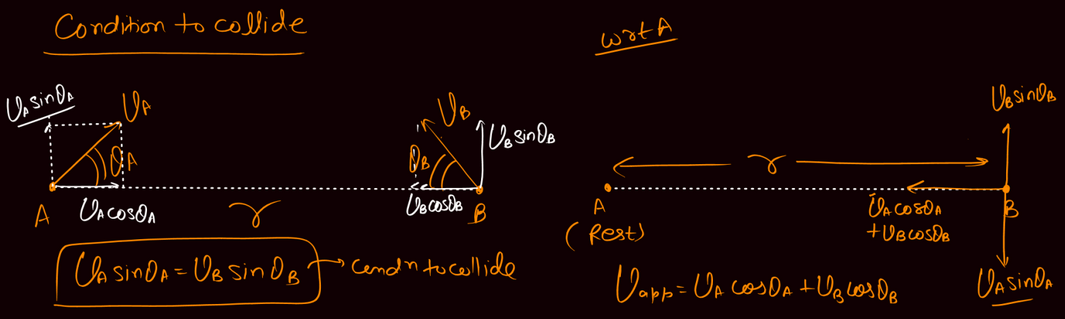 Condition to collide
wrt A
U_A sinθ_A
U_A
θ_A
A
U_A cosθ_A
r
U_B
U_B sinθ_B
θ_B
U_B cosθ_B
B
U_A sinθ_A = U_B sinθ_B → condn to collide
U_B sinθ_B
r
A
(Rest)
U_A cosθ_A
+ U_B cosθ_B
B
U_A sinθ_A
U_app = U_A cosθ_A + U_B cosθ_B